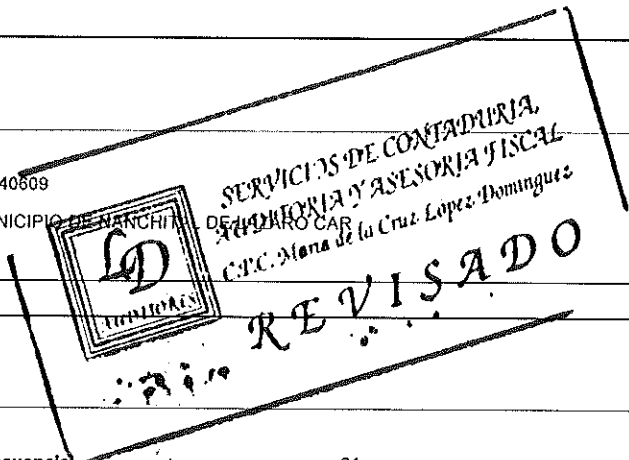 40609
NICIPIO DE NANCHITAL DE LAZARO CAR
SERVICIOS DE CONTADURIA,
AUDITORIA Y ASESORIA FISCAL
C.P.C. Maria de la Cruz López Dominguez
LD
AUDITORES
REVISADO